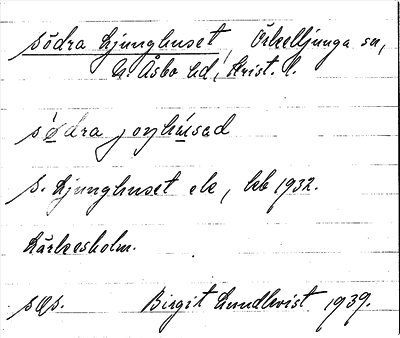 Södra Ljunghuset, Örkelljunga sn,
N. Åsbo hd, Krist. l.
södra joŋhúsəd
S. Ljunghuset ek, kb 1932.
Lärkesholm.
sep. Birgit Lundkvist 1939.